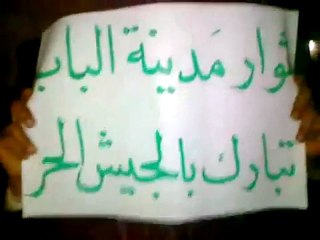 ثوار مَدينة الباب
تبارك بالجيش الحر